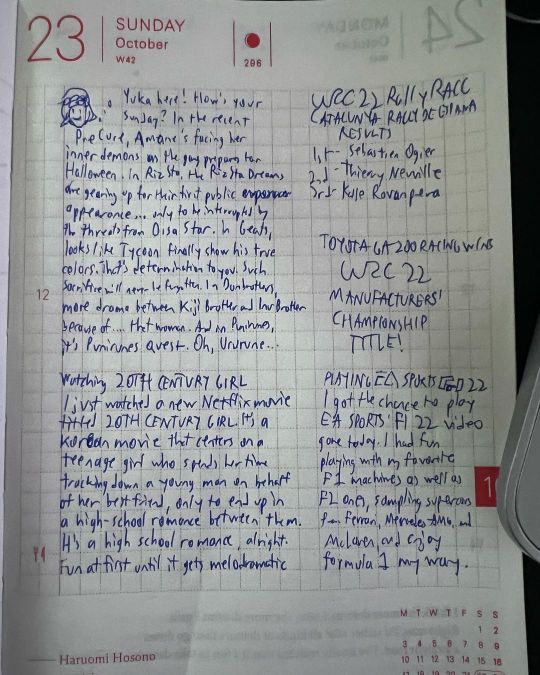 23
SUNDAY
October
W42
296
Yuka here! How's your
Sunday? In the recent
PreCure, Amane's facing her
inner demons as the gang prepares for
Halloween. In RizSta, the RizSta Dreams
are gearing up for their first public
appearance... only to be interrupted by
the threats from Oisa Star. In Geats,
looks like Tycoon finally show his true
colors. That's determination to you. Such
sacrifice will never be forgotten. In Donbrothers,
more drama between Kiji Brother and Inu Brother
because of.... that woman. And in Punirunes,
it's Punirunes quest. Oh, Ururune...
12
Watching 20TH CENTURY GIRL
I just watched a new Netflix movie
titled 20TH CENTURY GIRL. It's a
Korean movie that centers on a
teenage girl who spends her time
tracking down a young man on behalf
of her best friend, only to end up in
a high-school romance between them.
It's a high school romance alright.
Fun at first until it gets melodramatic
WRC 22 Rally RACC
CATALUNYA RALLY DE ESPANA
RESULTS
1st - Sebastien Ogier
2nd - Thierry Neuville
3rd - Kalle Rovanpera
TOYOTA GAZOO RACING WINS
WRC 22
MANUFACTURERS'
CHAMPIONSHIP
TITLE!
PLAYING EA SPORTS F1 22
I got the chance to play
EA SPORTS' F1 22 video
game today. I had fun
playing with my favorite
F1 machines as well as
F2 ones, sampling supercars
from Ferrari, Mercedes AMG, and
McLaren, and enjoy
formula 1 my way.
M T W T F S S
1 2
3 4 5 6 7 8 9
10 11 12 13 14 15 16
Haruomi Hosono